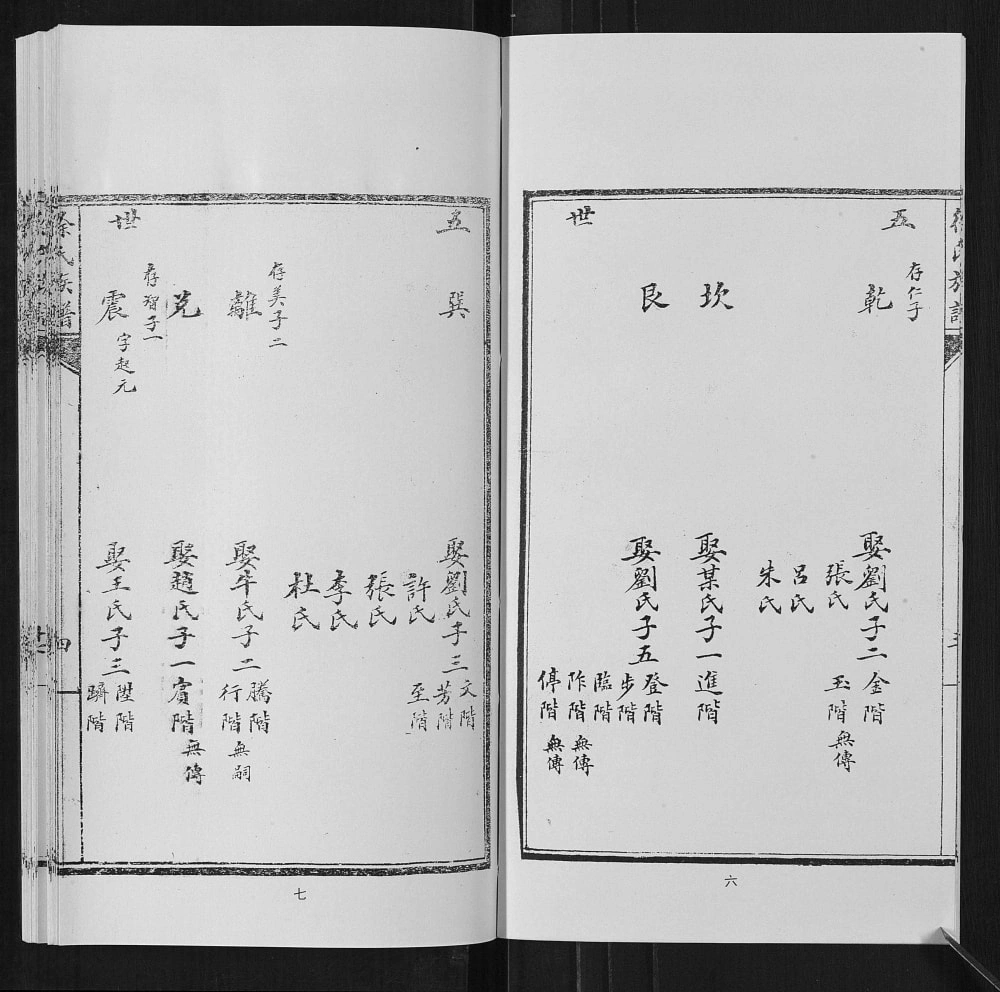 徐氏族譜
五世
存仁子
乾
娶劉氏子二金階
張氏
玉階無傳
呂氏
朱氏
坎
娶某氏子一進階
艮
娶劉氏子五登階
步階
臨階
阼階無傳
停階無傳
六
五世
巽
娶劉氏子三文階
芳階
至階
許氏
張氏
李氏
杜氏
存美子二
離
娶牛氏子二騰階
行階無嗣
兌
娶趙氏子一賓階無傳
存智子一
震字起元
娶王氏子三陞階
躋階
徐氏族譜
四
七